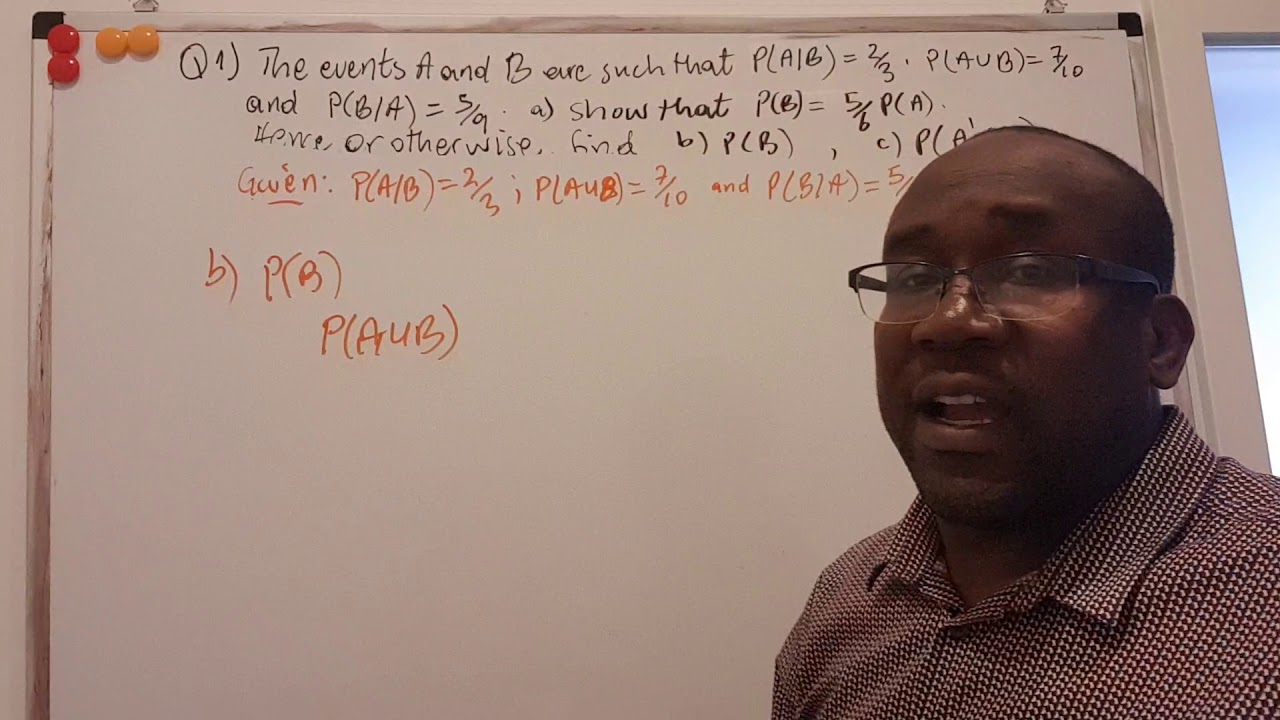 Q1) The events A and B are such that P(A|B) = 2/3 . P(AUB) = 7/10
and P(B/A) = 5/9 . a) show that P(B) = 5/6 P(A).
Hence, or otherwise, find b) P(B) , c) P(A'
Given: P(A/B) = 2/3 ; P(AUB) = 7/10 and P(B/A) = 5/
b) P(B)
P(AUB)